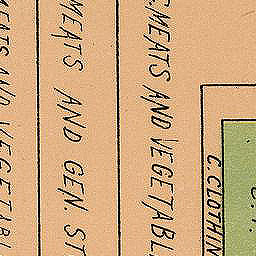 MEATS AND VEGETABL
MEATS AND GEN. ST
C.MEATS AND VEGETABL.
C.CLOTHIN